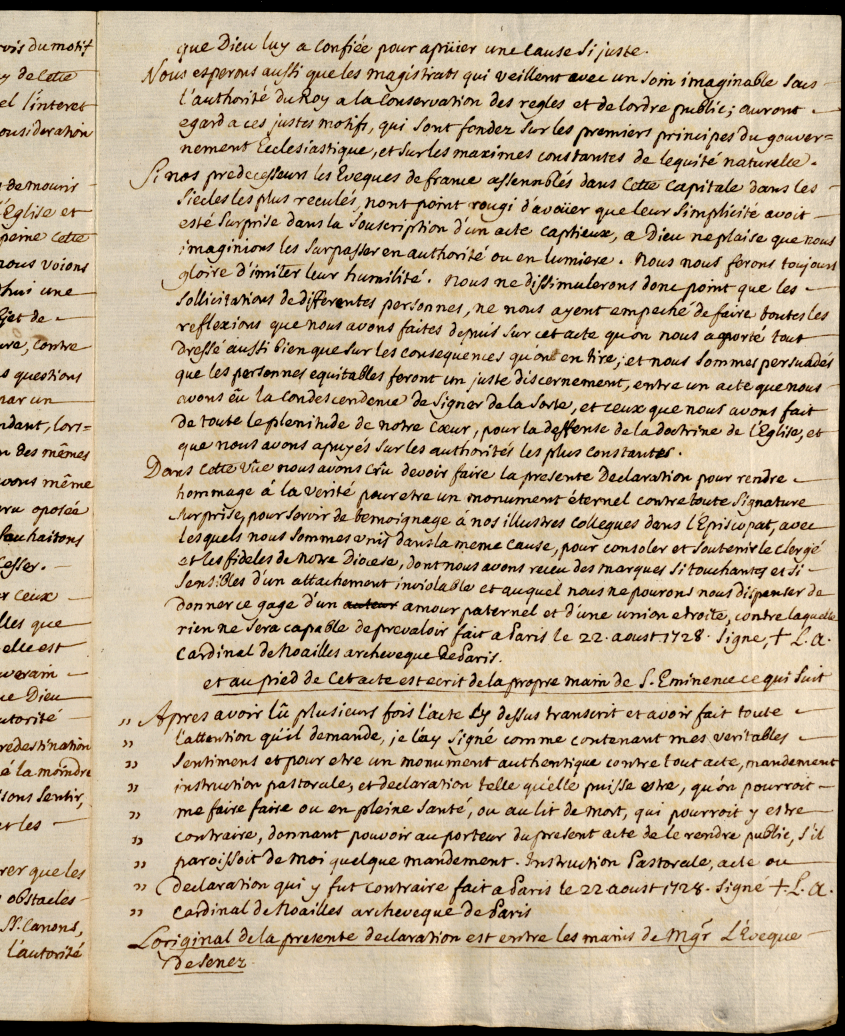 vois du motif
y de Cette
el l'interet
onsideration
de mourir
l'Eglise et
peine Cette
nous voions
hui une
jet de
contre
s questions
par un
ndant, lors=
n des mêmes
vons même
ru oposée
souhaitons
cesser.
r ceux
lles que
elle est
uverain
ue Dieu
utorité
rédestination
é la moindre
sons sentir,
et les
rer que les
obstacles
SS. Canons,
l'autorité
que Dieu luy a confiée pour apuier une Cause si juste.
Nous esperons aussi que les magistrats qui veillent avec un soin imaginable sous
l'authorité du Roy a la Conservation des regles et de lordre public; auront
egard a ces justes motifs, qui sont fondez sur les premiers principes du gouver=
nement Ecclesiastique, et sur les maximes constantes de lequité naturelle.
Si nos predecesseurs les Eveques de france assemblés dans Cette Capitale dans les
Siécles les plus reculés, nont point rougi d'avoüer que leur simplicité avoit
esté Surprise dans la Souscription d'un acte captieux, a Dieu ne plaise que nous
imaginions les surpasser en authorité ou en lumiere. Nous nous ferons toujours
gloire d'imiter leur humilité. Nous ne dissimulerons donc point que les
sollicitations de differentes personnes, ne nous ayent empeché de faire toutes les
reflexions que nous avons faites depuis sur cet acte quon nous a aporté tout
Dressé aussi bien que sur les consequences qu'on en tire; et nous sommes persuadés
que les personnes equitables feront un juste discernement, entre un acte que nous
avons eü la Condescendence de signer de la sorte, et ceux que nous avons fait
de toute le plenitude de notre Cœur, pour la deffense de la doctrine de l'Eglise, et
que nous avons apuyés sur les authorités les plus constantes.
Dans Cette Vüe nous avons Crû devoir faire la presente Declaration pour rendre
hommage á la Verité pour etre un monument éternel contre toute signature
surprise, pour servir de temoignage à nos illustres Collegues dans l'Episcopat, avec
lesquels nous sommes unis dans la meme cause, pour consoler et soutenir le Clergé
et les fideles de Notre Diocese, dont nous avons receu des marques si touchantes et si
sensibles d'un attachement inviolable et auquel nous ne pourons nous dispenser de
donner ce gage d'un amour paternel et d'une union etroite, contre laquelle
rien ne sera capable de prevaloir fait a Paris le 22. aoust 1728. Signé, + L. a.
Cardinal de Noailles archeveque de Paris.
et au pied de Cet acte est ecrit de la propre main de S. Eminence ce qui suit
" Apres avoir lû plusieurs fois l'acte Cy dessus transcrit et avoir fait toute
" l'attention qu'il demande, je l'ay signé comme contenant mes veritables
" sentimens et pour etre un monument authentique contre tout acte, mandement
" instruction pastorale, et declaration telle qu'elle puisse estre, qu'on pourroit
" me faire faire ou en pleine santé, ou au lit de mort, qui pourroit y estre
" contraire, donnant pouvoir au porteur du present acte de le rendre public, s'il
" paroissoit de moi quelque mandement. Instruction Pastorale, acte ou
" Declaration qui y fut contraire fait a Paris le 22 aoust 1728. signé + L. a.
" Cardinal de Noailles archeveque de Paris
L'original de la presente declaration est entre les mains de Mgr L'Eveque
de Senez.